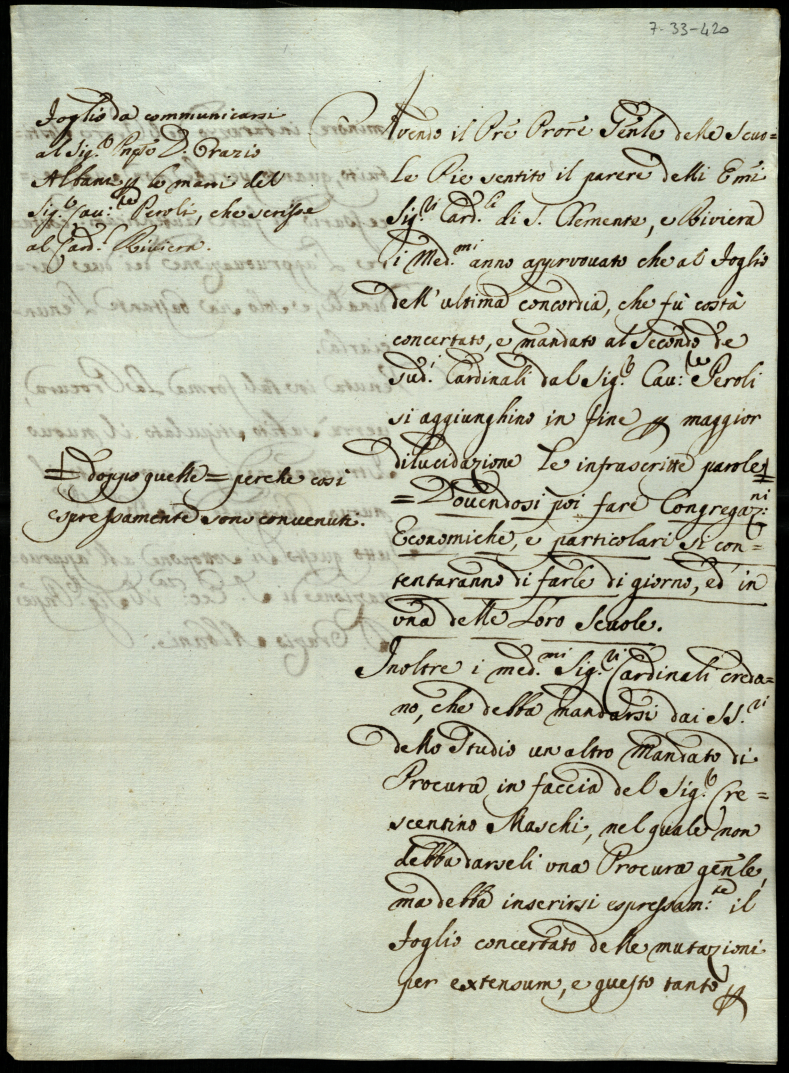 7-33-420
Foglio da communicarsi
al Sig.e Pnpe D. Orazio
Albani p le mani del
Sig.e Cau:re Peroli, che scrisse
al Card.l Riviera.
Avendo il Pre Prore Genle delle Scuo=
le Pie sentito il parere delli Emi
Sig.ri Card.li di S. Clemente, e Riviera
i Med.mi anno approvato che al Foglio
dell'ultima concordia, che fù costà
concertato, e mandato al secondo de
sud.i Cardinali dal Sig.e Cau:re Peroli
si aggiunghino in fine p maggior
dilucidazione le infrascritte parole
= doppo quelle = perche così
espressamente sono convenuti.
= Dovendosi poi fare Congregaz:ni
Economiche, e particolari si con=
tentaranno di farle di giorno, ed in
una delle Loro Scuole.
Inoltre i med.mi Sig.ri Cardinali credo=
no, che debba mandarsi dai SS.ri
dello Studio un altro Mandato di
Procura in faccia del Sig.e Cre=
scentino Maschi, nel quale non
debba darseli una Procura genle,
ma debba inserirsi espressam:te il
Foglio concertato delle mutazioni
per extensum, e questo tanto p